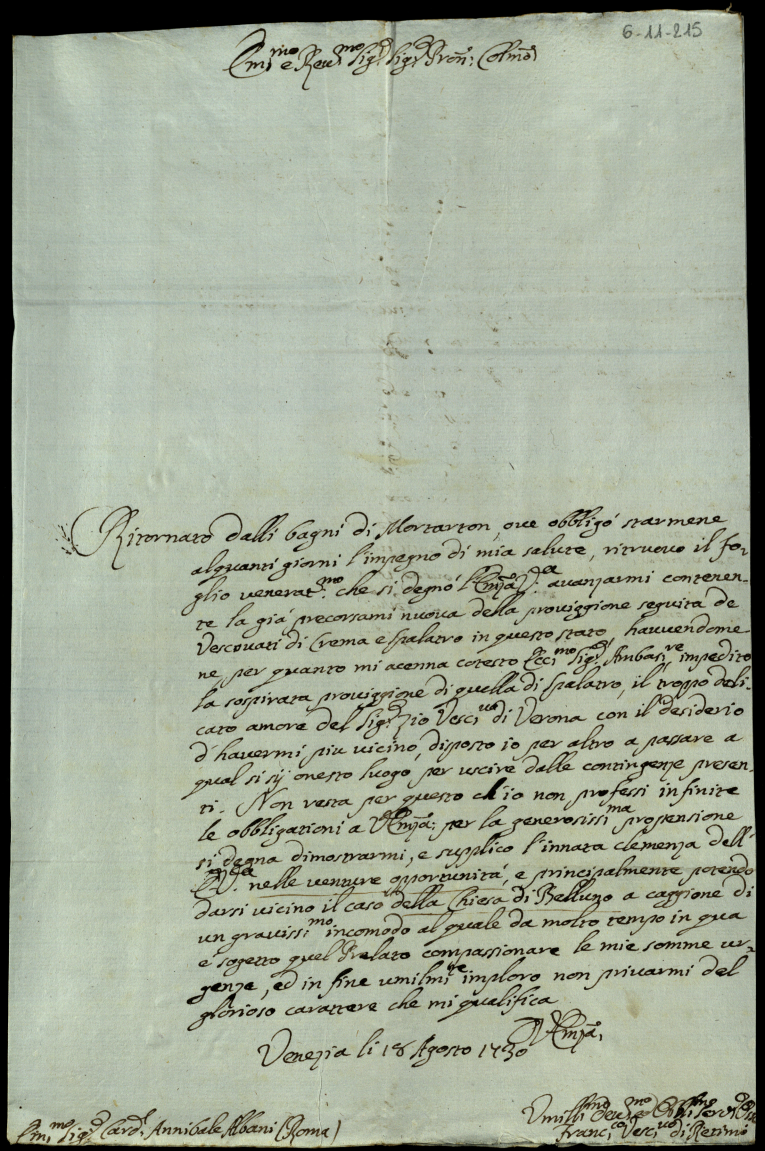 6-11-215
Em.mo e Rev.mo Sig.r Sig.r Pron: Colmo
Ritornato dalli bagni di Mortarton, ove obbligò starmene
alquanti giorni l'impegno di mia salute, ritruovo il fo-
glio venerat.mo che si degnò l'Emza V.ra avanzarmi contenen-
te la già precorsami nuova della proviggione seguita de
Vescovati di Crema e Spalatro in questo stato, havvendome
ne, per quanto mi acenna cotesto Ecc.mo Sig.r Ambas.re impedito
la sospirata proviggione di quella di Spalatro, il troppo deli-
cato amore del Sig.r Zio Vesc.vo di Verona con il desiderio
d'havermi più vicino, disposto io per altro a passare a
qual si sij onesto luogo per uscire dalle contingenze presen-
ti. Non resta per questo ch'io non professi infinite
le obbligationi a V. Emza: per la generosissi.ma propensione
si degna dimostrarmi, e supplico l'innata clemenza dell'
E. V.ra nelle venture opportunità, e principalmente potendo
darsi vicino il caso della Chiesa di Belluno a caggione di
un gravissi.mo incomodo al quale da molto tempo in qua
è sogetto quel Prelato compassionare le mie somme ur-
genze, ed in fine umilm.te imploro non privarmi del
glorioso carattere che mi qualifica
D V. Emza:
Venezia li 18 Agosto 1730
Umilli.mo Dev.mo et Obbl.mo Serv.
Em.mo Sig.r Card.l Annibale Albani (Roma)
Franc.co Vesc.vo di Retimo